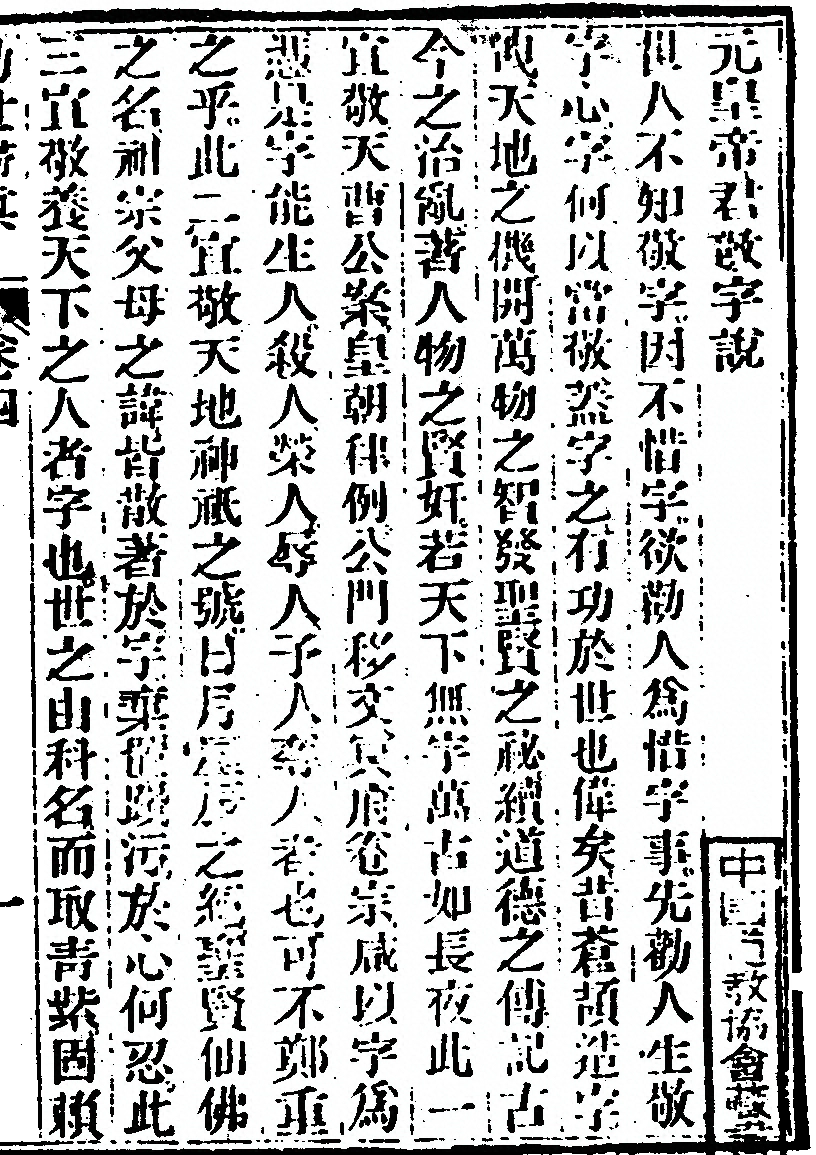 元皇帝君敬字說
世人不知敬字因不惜字欲勸人為惜字事先勸人生敬
字心字何以當敬蓋字之有功於世也偉矣昔蒼頡造字
洩天地之機開萬物之智發聖賢之祕續道德之傳記古
今之治亂著人物之賢奸若天下無字萬古如長夜此一
宜敬天曹公案皇朝律例公門移文冥府卷宗咸以字為
憑是字能生人殺人榮人辱人予人奪人者也可不鄭重
之乎此二宜敬天地神祇之號日月星辰之經聖賢仙佛
之名祖宗父母之諱皆散著於字棄擲踐污於心何忍此
三宜敬養天下之人者字也世之由科名而取青紫固賴
卷四
一
中國道教協會藏書